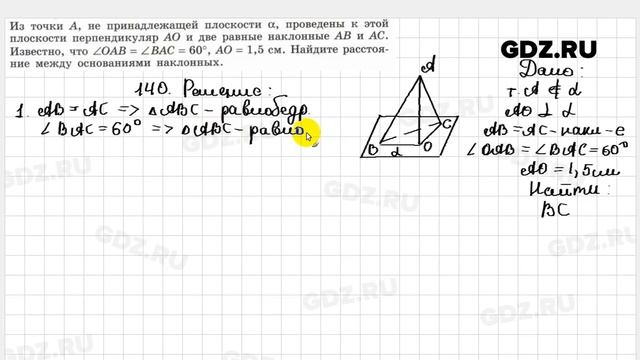 Из точки A, не принадлежащей плоскости α, проведены к этой
плоскости перпендикуляр AO и две равные наклонные AB и AC.
Известно, что ∠OAB = ∠BAC = 60°, AO = 1,5 см. Найдите расстоя-
ние между основаниями наклонных.
GDZ.RU
140. Решение:
1. AB = AC => △ABC - равнобедр.
∠BAC = 60° => △ABC - равно
A
B
C
O
α
Дано:
т. A ∉ α
AO ⊥ α
AB = AC - накл-е
∠OAB = ∠BAC = 60°
AO = 1,5 см
Найти:
BC
GDZ.RU
GDZ.RU
GDZ.RU
GDZ.RU
GDZ.RU
GDZ.RU